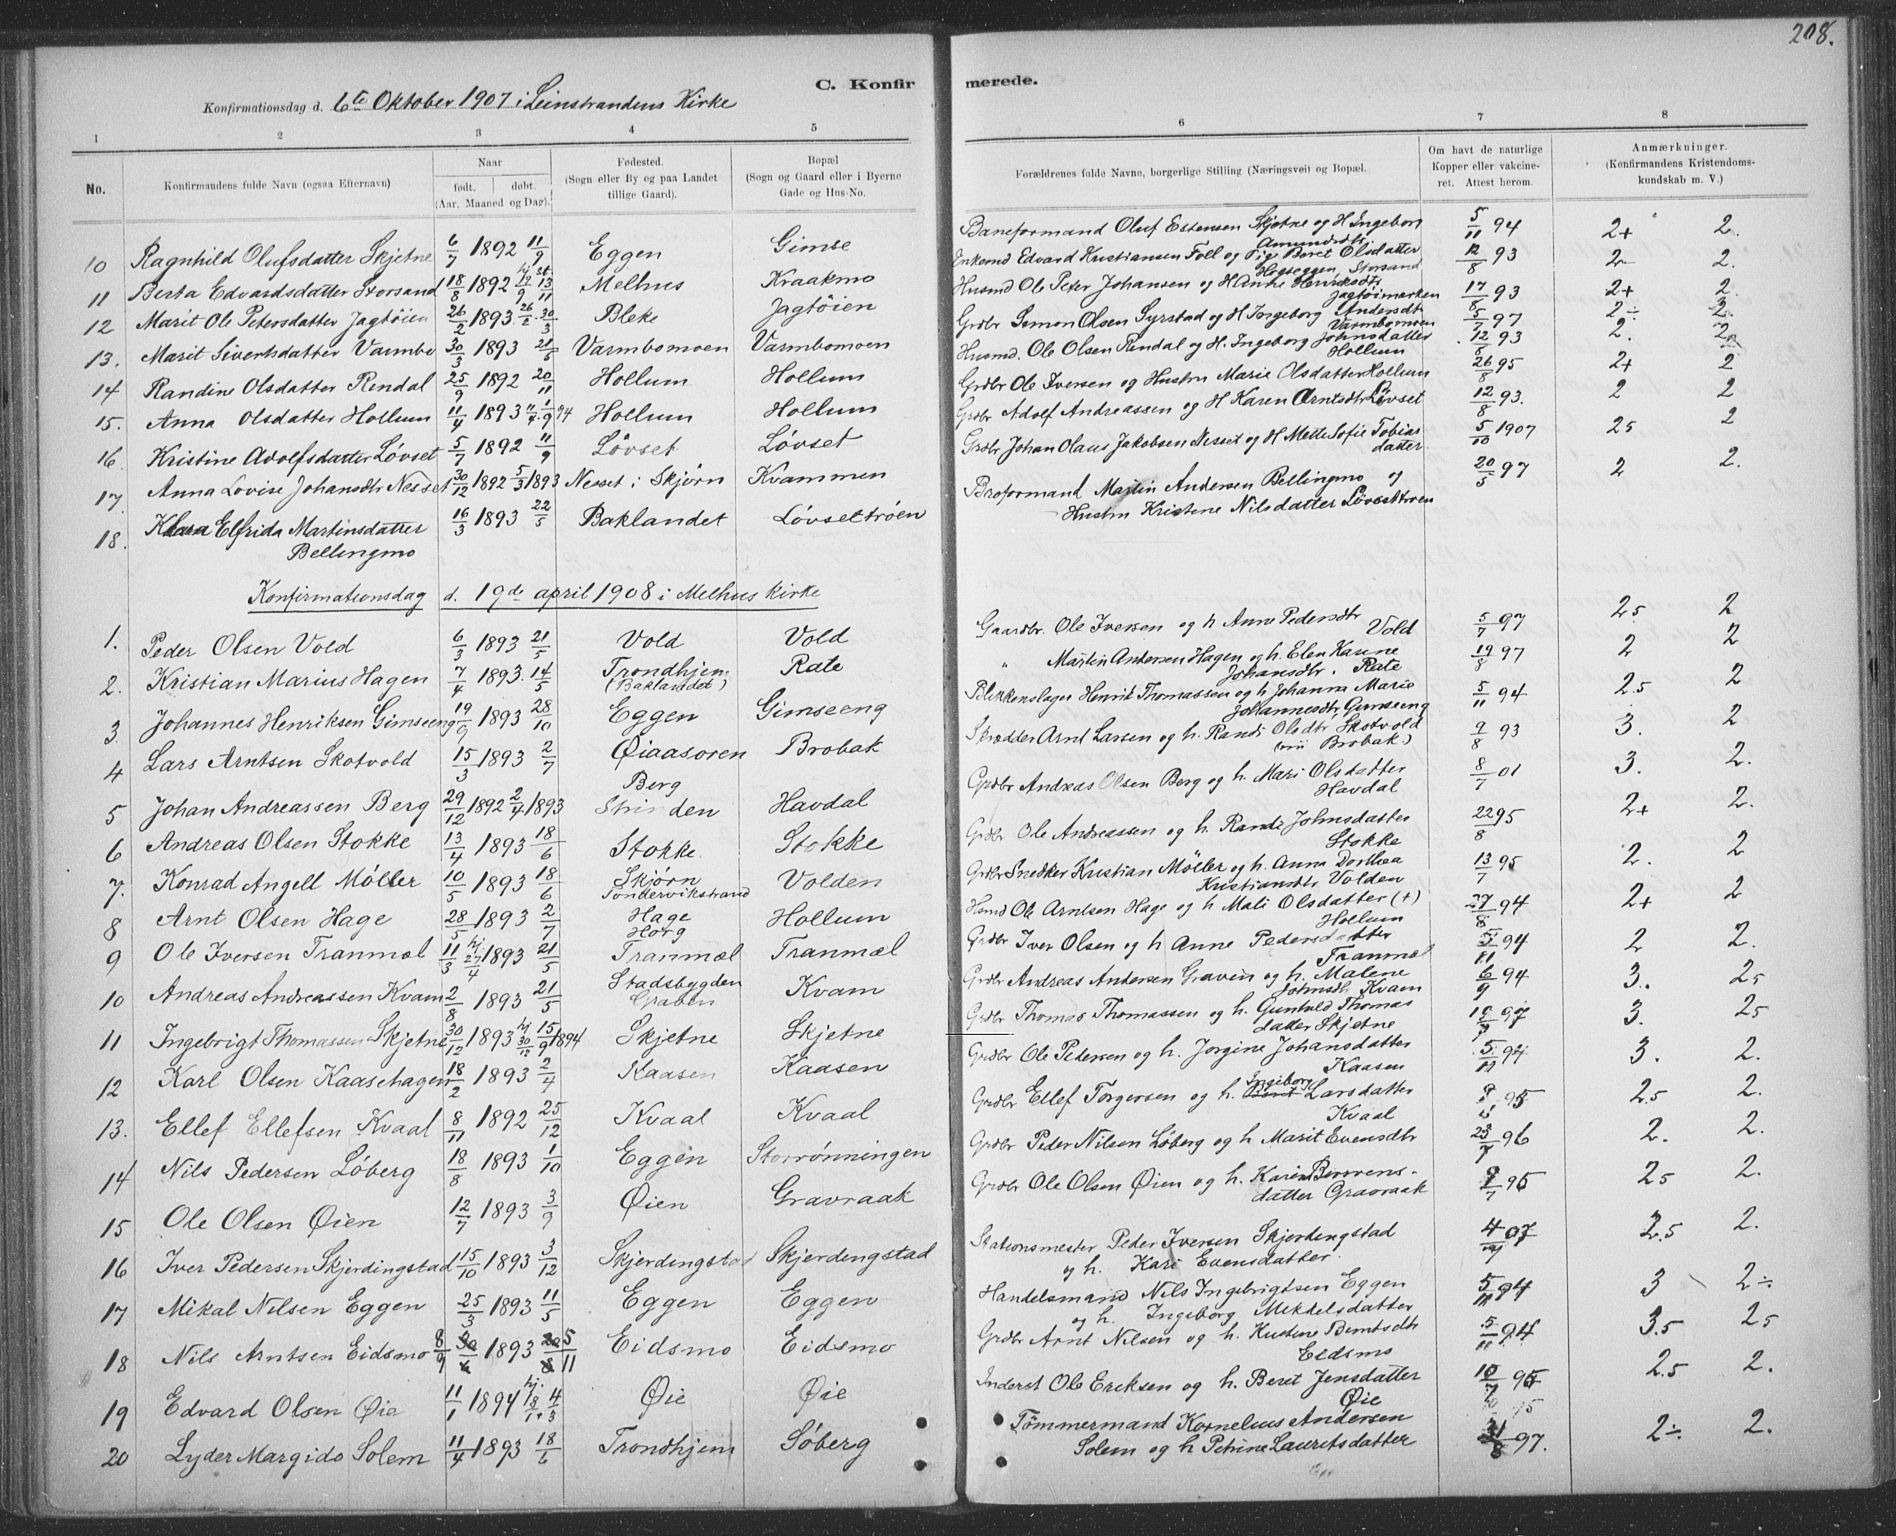 208.
C. Konfirmerede.
Konfirmationsdag d. 6te Oktober 1907 i Leinstrandens Kirke
1 2 3 4 5 6 7 8
No.
Konfirmandens fulde Navn (ogsaa Efternavn)
Naar
født. døbt.
(Aar, Maaned og Dag).
Fødested.
(Sogn eller By og paa Landet
tillige Gaard).
Bopæl
(Sogn og Gaard eller i Byerne
Gade og Hus-No.
Forældrenes fulde Navne, borgerlige Stilling (Næringsvei) og Bopæl.
Om havt de naturlige
Kopper eller vakcine-
ret. Attest herom.
Anmærkninger.
(Konfirmandens Kristendoms-
kundskab m. V.)
10 Ragnhild Olufsdatter Skjetne 6/7 1892 11/9 Eggen Gimse Baneformand Oluf Estensen Skjetne og H Ingeborg Amundsdtr 5/11 94 2+ 2.
11 Berta Edvardsdatter Storsand 18/8 1892 13/11 Melhus Kraakmo Enkemd Edvard Kristiansen Foll og Pige Beret Olsdatter Storsand 12/8 93 2- 2.
12 Marit Ole Petersdatter Jagtöien 26/2 1893 30/3 Bleke Jagtöien Husmd Ole Peter Johansen og H Anne Henriksdtr Jagtöimarken 17/8 93 2+ 2.
13. Marit Sivertsdatter Varmbo 30/3 1893 21/5 Varmbomoen Varmbomoen Grdbr Simon Olsen Syrstad og H Ingeborg Andersdt Varmbomoen 5/7 97 2÷
14 Randine Olsdatter Rendal 25/9 1892 20/11 Hollum Hollum Husmd. Ole Olsen Rendal og H. Ingeborg Johnsdatter Hollum 12/8 93 2.
15. Anna Olsdatter Hollum 11/4 1893 1/9 94 Hollum Hollum Grdbr Ole Iversen og Hustru Marie Olsdatter Hollum 26/8 95 2+ 2
16 Kristine Adolfsdatter Lövset 5/7 1892 11/9 Lövset Lövset Grdbr Adolf Andreassen og H Karen Arntsdtr Lövset 12/8 93. 2 2
17. Anna Lovise Johansdtr Nesset 30/12 1892 5/3 1893 Nesset i Skjörn Kvammen Grdbr Johan Olaus Jakobsen Nesset og H Mette Sofie Tobias datter 5/10 1907 25 2
18. Klara Elfrida Martinsdatter Bellingmo 16/3 1893 22/5 Baklandet Lövsettröen Broformand Martin Andersen Bellingmo og Hustru Kristine Nilsdatter Lövsettroen 20/5 97 2 2.
Konfirmationsdag d. 19de april 1908 i Melhus kirke
1. Peder Olsen Vold 6/3 1893 21/5 Vold Vold Gaardbr. Ole Iversen og h Anne Pedersdtr Vold 5/7 97 25 2
2. Kristian Marius Hagen 7/4 1893. 14/5 Trondhjem (Baklandet) Rate " Martin Andersen Hagen og h. Elen Kanne Johansdtr. Rate 19/8 97 2 2
3 Johannes Henriksen Gimseeng 19/9 1893 28/10 Eggen Gimseeng Blikkenslager Henrik Thomassen og h Johanna Marie Johannesdtr, Gimseeng 5/11 94 2.5 2
4 Lars Arntsen Skotvold 15/3 1893 2/7 Øiaasoren Brobak Skrædder Arnt Larsen og h. Randi Olsdtr, Skotvold (nu Brobak) 9/8 93 3. 2
5 Johan Andreassen Berg 29/12 1892 2/4 1893 Berg Strinden Havdal Grdbr Andreas Olsen Berg og h Mari Olsdatter Havdal 8/7 01 3. 2.
6 Andreas Olsen Stokke 13/4 1893 18/6 Stokke. Stokke Grdbr Ole Andreassen og h. Randi Johnsdatter Stokke 22/8 95 2+ 2.
7. Konrad Angell Möller 10/5 1893 18/6 Skjørn Töndervikstrand Volden Grdbr Snedker Kristian Møller og h. Anna Dorthea Kristiansdtr Volden 13/7 95 2. 2
8 Arnt Olsen Hage 28/5 1893 2/7 Hage Horg Hollum Hsmd Ole Arntsen Hage og h Mali Olsdatter (+) Hollum 27/8 94 2+ 2
9 Ole Iversen Tranmæl 11/3 hj 27/4 1893 21/5 Tranmæl Tranmæl Grdbr Iver Olsen og h Anne Pedersdatter Tranmæl 5/11 94 2 2.
10 Andreas Andreassen Kvam 2/8 1893 21/5 Stadsbygden Graven Kvam Grdbr Andreas Andersen Graven og h. Malene Johnsdtr Kvam 6/9 94 3. 25
11 Ingebrigt Thomassen Skjetne 30/12 1893 hj 30/12 15/9 1894 Skjetne Skjetne Grdbr Thomas Thomassen og h. Gunhild Thomas datter Skjetne 97 3. 25
12 Karl Olsen Kaasehagen 18/2 1893 2/4 Kaasen Kaasen Grdbr Ole Pedersen og h. Jorgine Johansdatter Kaasen 5/11 94 3. 2.
13. Ellef Ellefsen Kvaal 8/11 1892 25/12 Kvaal Kvaal Grdbr Ellef Torgersen og h. Ingeborg Larsdatter Kvaal 95 2.5 2.
14 Nils Pedersen Löberg 18/8 1893 1/10 Eggen Storrönningen Grdbr Peder Nilsen Löberg og h Marit Evensdtr 96 2. 2.
15 Ole Olsen Øien 12/7 1893 3/9 Øien Gravraak Grdbr Ole Olsen Øien og h. Karen datter Gravraak 95 25 2.
16 Iver Pedersen Skjerdingstad 15/10 1893 3/12 Skjerdingstad Skjerdengstad Stationsmester Peder Iversen Skjerdingstad og h. Kari Evensdatter 07 2.5 2.
17 Mikal Nilsen Eggen 25/3 1893 11/5 Eggen Eggen Handelsmand Nils Ingebrigtsen Eggen og h. Ingeborg Mikkelsdatter 5/11 94 3 2÷
18 Nils Arntsen Eidsmo 8/9 1893 5/11 Eidsmo Eidsmo Grdbr Arnt Nilsen og h. Kustine Berntsdtr Eidsmo 5/11 94 3.5 25
19 Edvard Olsen Øie 11/1 1894 hj. 4/3 Øie Øie Inderst Ole Eriksen og h. Beret Jensdatter Øie 10/7 95 2.5 2.
20 Lyder Margido Solem 11/4 1893 18/6 Trondhjem Söberg Tömmermand Kornelius Andersen Solem og h Petrine Lauritsdatter 97. 2÷ 2.